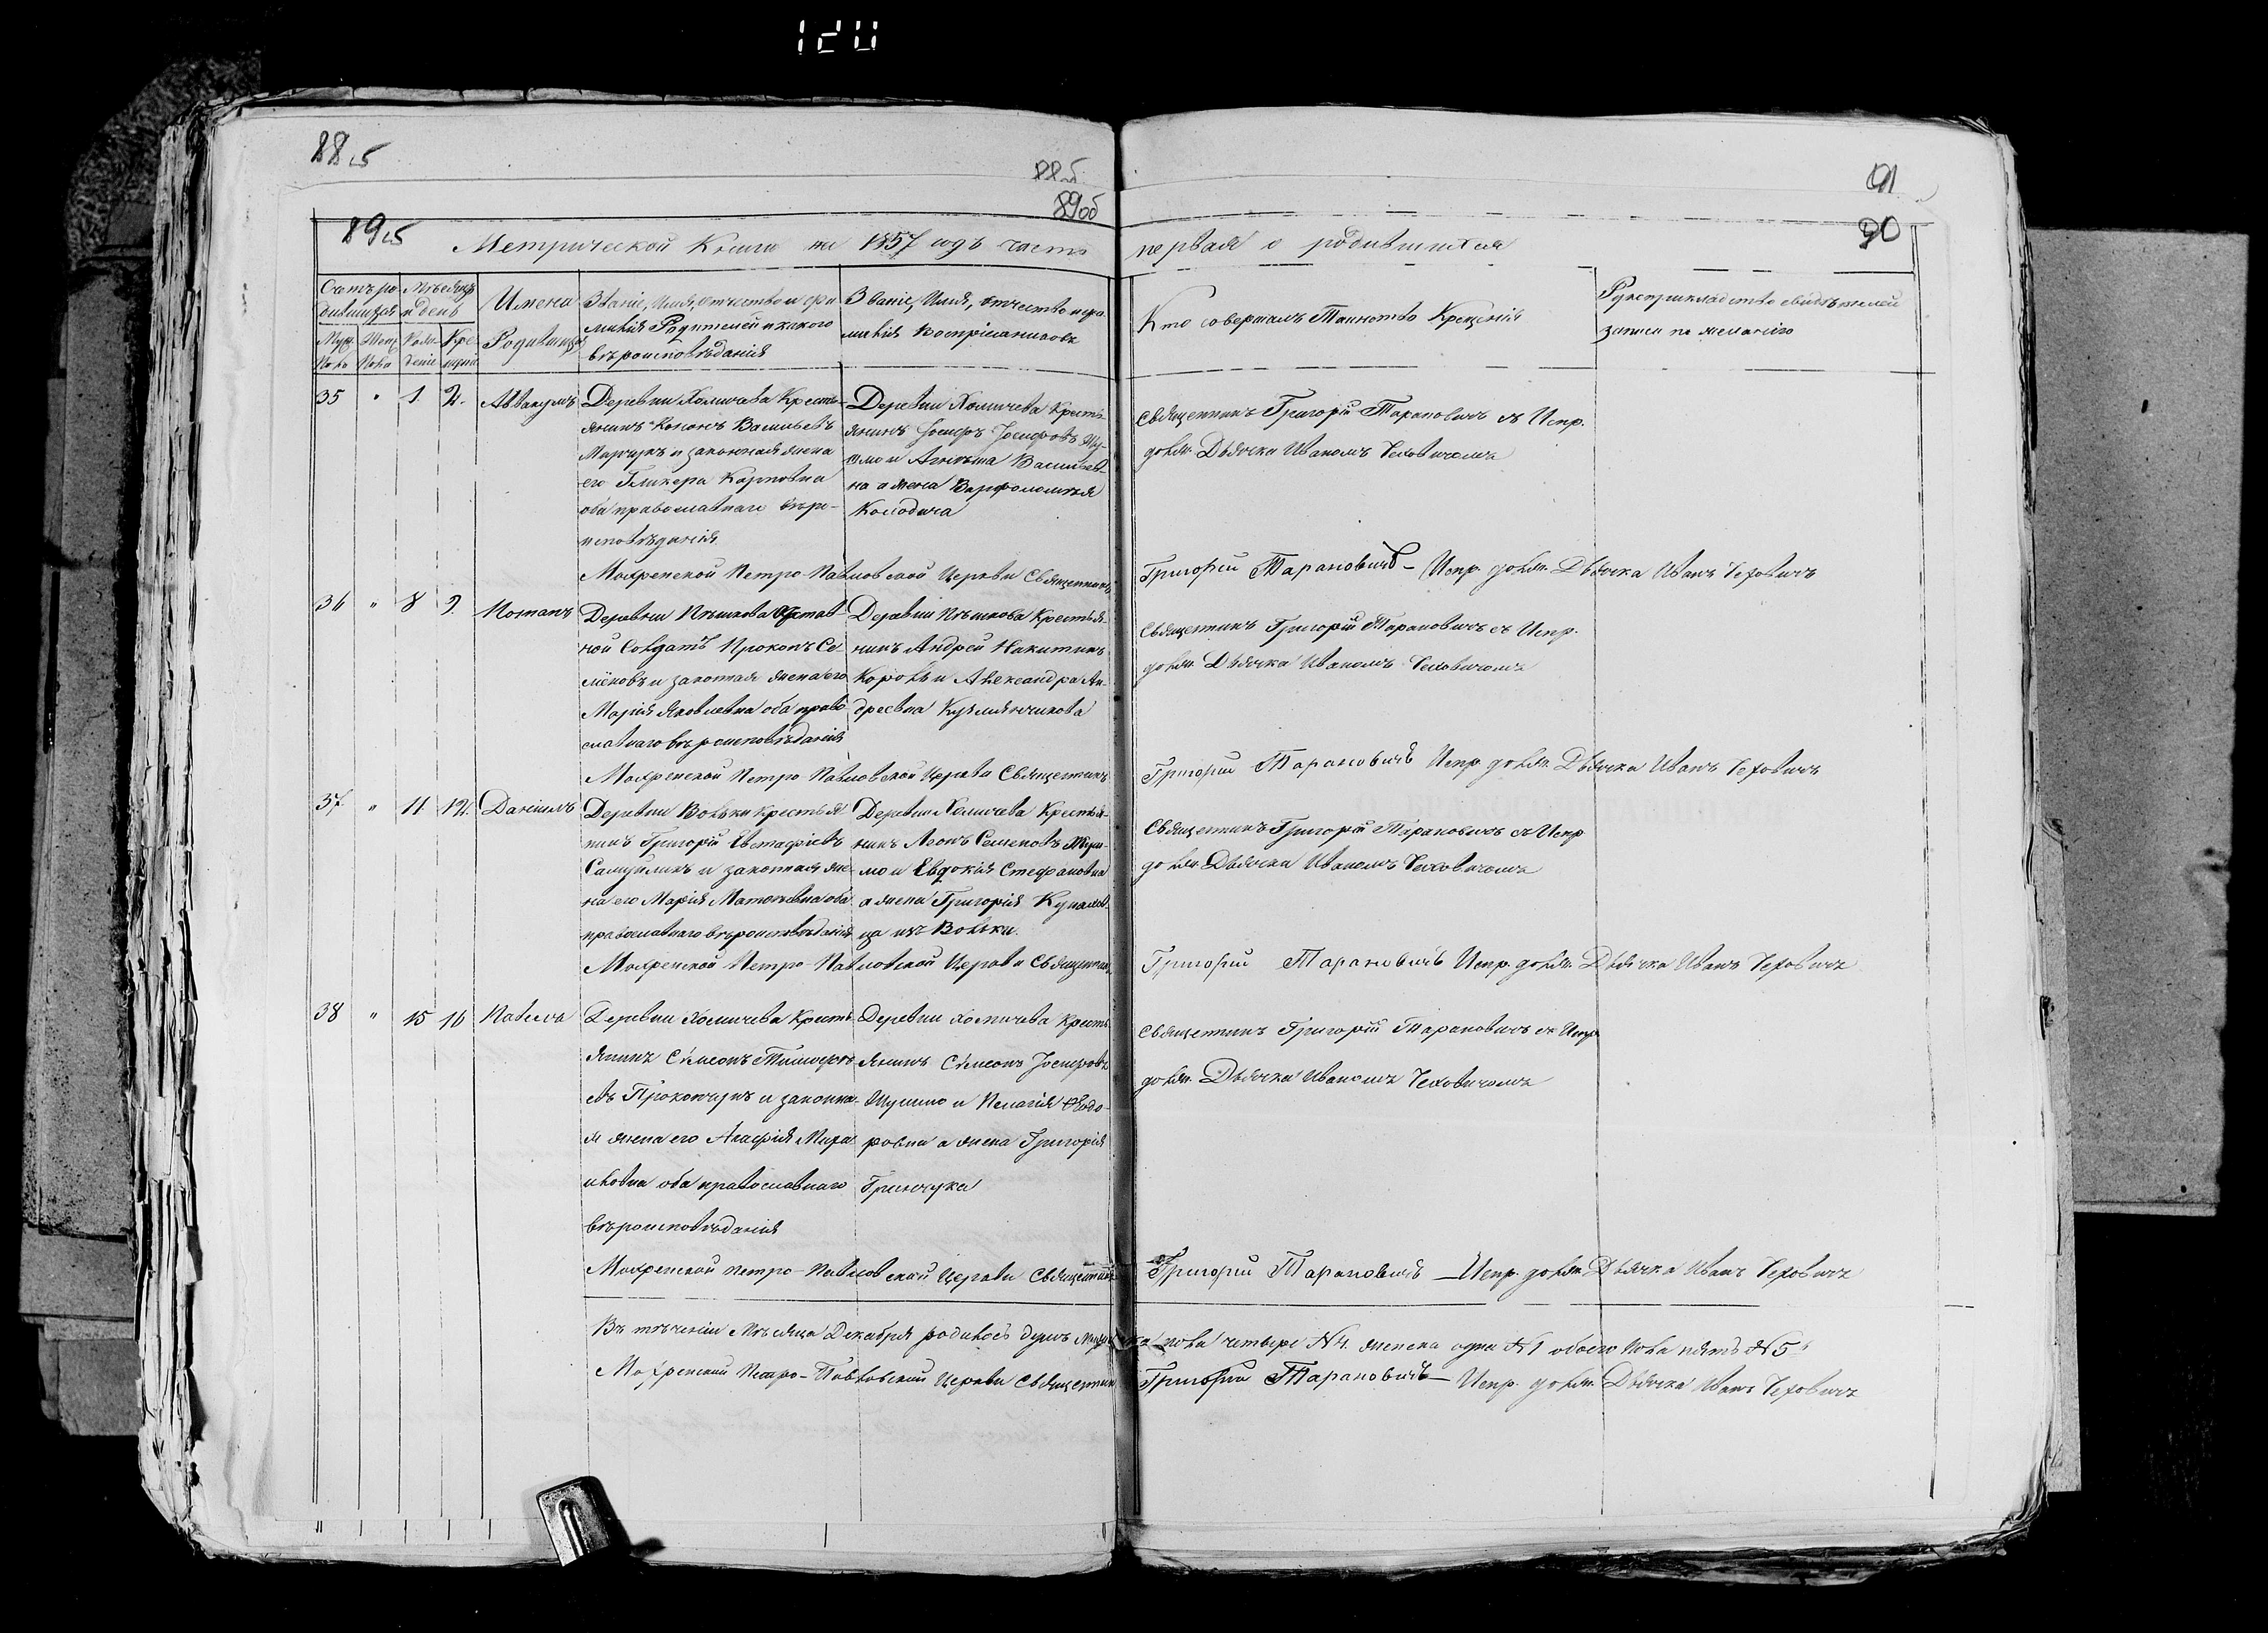 120
88об
88об
89об
91
90
89об
Метрической Книги на 1857 годъ часть первая о родившихся
Счетъ ро-
дившихся
Муж.
Пола
Жен.
Пола
Мѣсяцъ
и день
Рож-
денія
Кре-
щенія
Имена
Родившихся
Званіе, Имя, Отчество и фа-
милія Родителей и какого
вѣроисповѣданія
Званіе, Имя, отчество и фа-
милія Воспріемниковъ
Кто совершалъ Таинство Крещенія
Рукоприкладство свидѣтелей
записи по желанію
35 " 1. 2. Аввакумъ
Деревни Хомичева Кресть-
янинъ Кононъ Васильевъ
и законная жена
его Гликера Карповна
оба православнаго вѣро-
исповѣданія
Деревни Хомичева Кресть-
янинъ Іосифъ Іосифовъ Шу-
мо и Агаѳья Васильев-
на а жена Варфоломея
Колодича
Священникъ Григорій Тарановичъ съ Испр.
долж. Дьячка Иваномъ Чеховичомъ
Мохренской Петро-Павловской Церкви Священникъ Григорій Тарановичъ – Испр. долж. Дьячка Иванъ Чеховичъ
36 " 8 9. Потапъ
Деревни Пѣшкова Отстав-
ной Солдатъ Прокопъ Се-
меновъ и законная жена его
Марія Яковлевна оба право-
славнаго вѣроисповѣданія
Деревни Пѣшкова Крестья-
нинъ Андрей Никитинъ
Король и Александра Ан-
дреевна
Священникъ Григорій Тарановичъ съ Испр.
долж. Дьячка Иваномъ Чеховичомъ
Мохренской Петро-Павловской Церкви Священникъ Григорій Тарановичъ Испр. долж. Дьячка Иванъ Чеховичъ
37 " 11 12. Даніилъ
Деревни Вольки крестья-
нинъ Григорій Евстафіевъ
и законная же-
на его Марія Матѳеевна оба
православнаго вѣроисповѣданія
Деревни Хомичева Крестья-
нинъ Семеновъ Шу-
мо и Евдокія Стефановна
а жена Григорія
изъ Вольки.
Священникъ Григорій Тарановичъ съ Испр
долж. Дьячка Иваномъ Чеховичомъ
Мохренской Петро-Павловской Церкви Священникъ Григорій Тарановичъ Испр. долж. Дьячка Иванъ Чеховичъ
38 " 15 16 Павелъ
Деревни Хомичева Кресть-
янинъ Сѵмеонъ Тимофѣе-
въ Прокопчукъ и законна-
я жена его Агафія
оба православнаго
вѣроисповѣданія
Деревни Хомичева Кресть-
янинъ Сѵмеонъ Іосифовъ
Шумно и Пелагія Ѳеодо-
ровна а жена Григорія
Гринчука
Священникъ Григорій Тарановичъ съ Испр.
долж. Дьячка Иваномъ Чеховичомъ
Мохренской Петро-Павловской Церкви Священникъ Григорій Тарановичъ – Испр. долж. Дьячка Иванъ Чеховичъ
Въ теченіи Мѣсяца Декабря родилось душъ мужеска пола четыре №4. женска одна №1 обоего пола пять №5
Мохренской Петро-Павловской Церкви Священникъ Григорій Тарановичъ – Испр. долж. Дьячка Иванъ Чеховичъ